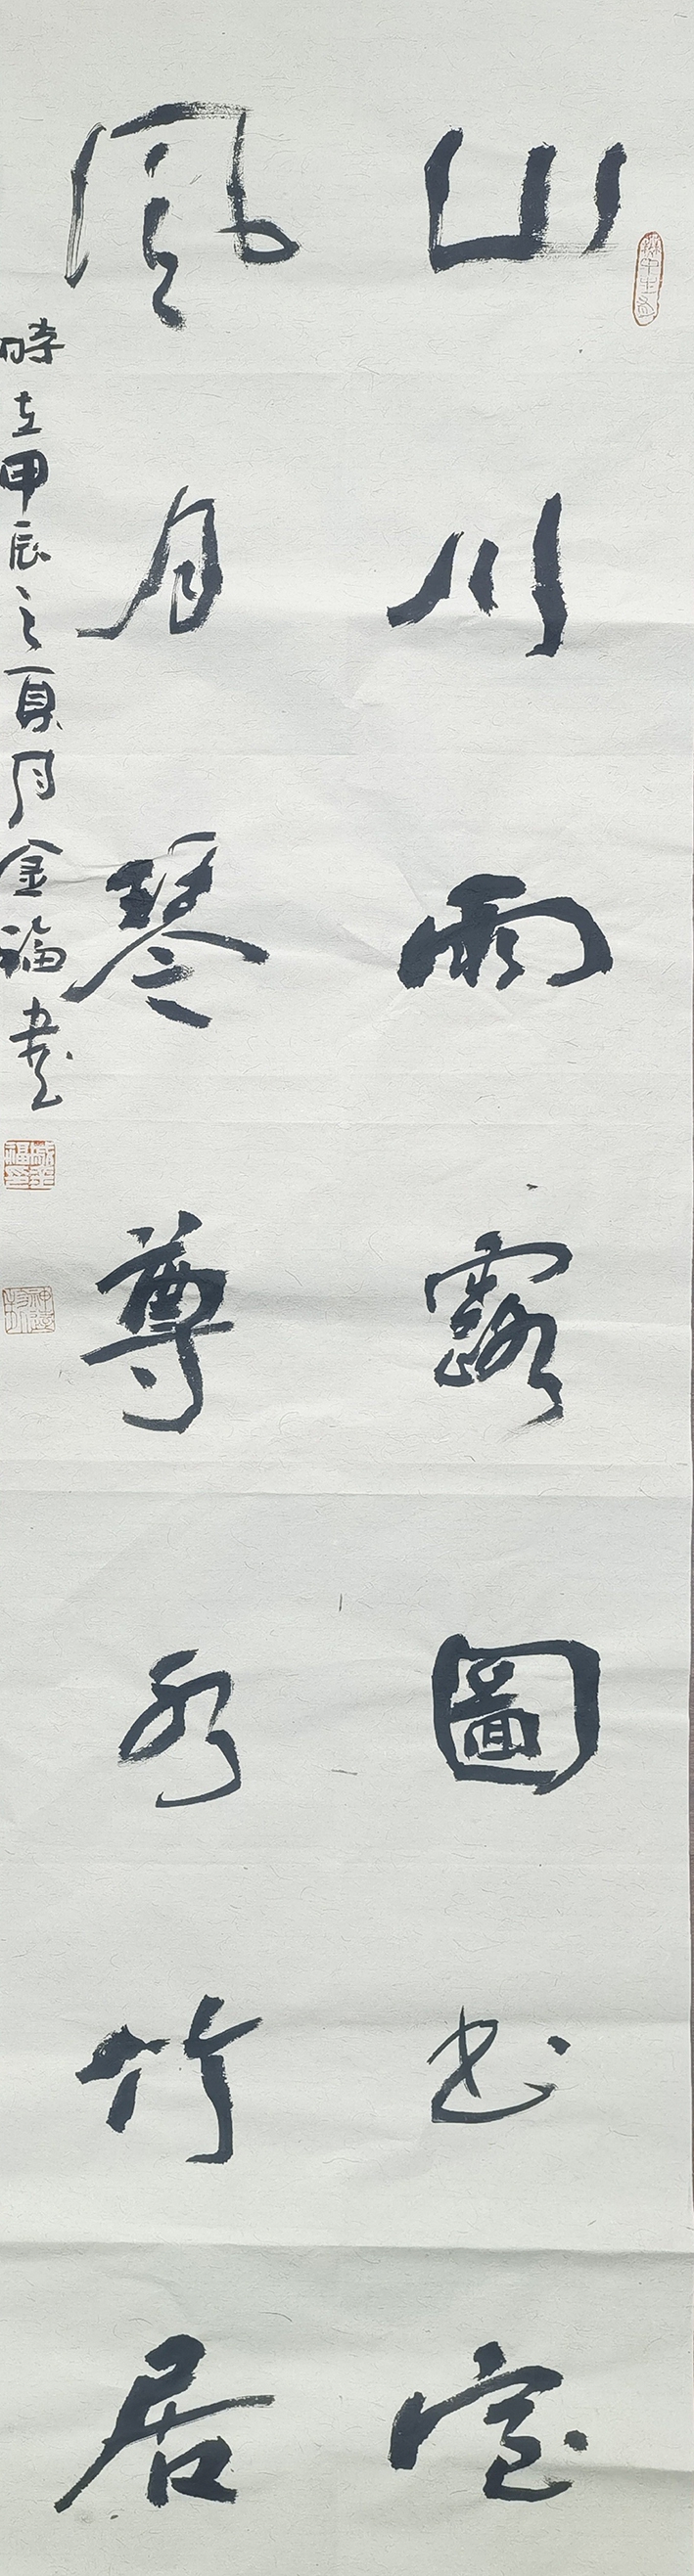 山川雨露圖书室
風月琴尊水竹居
時在甲辰之夏月金福書